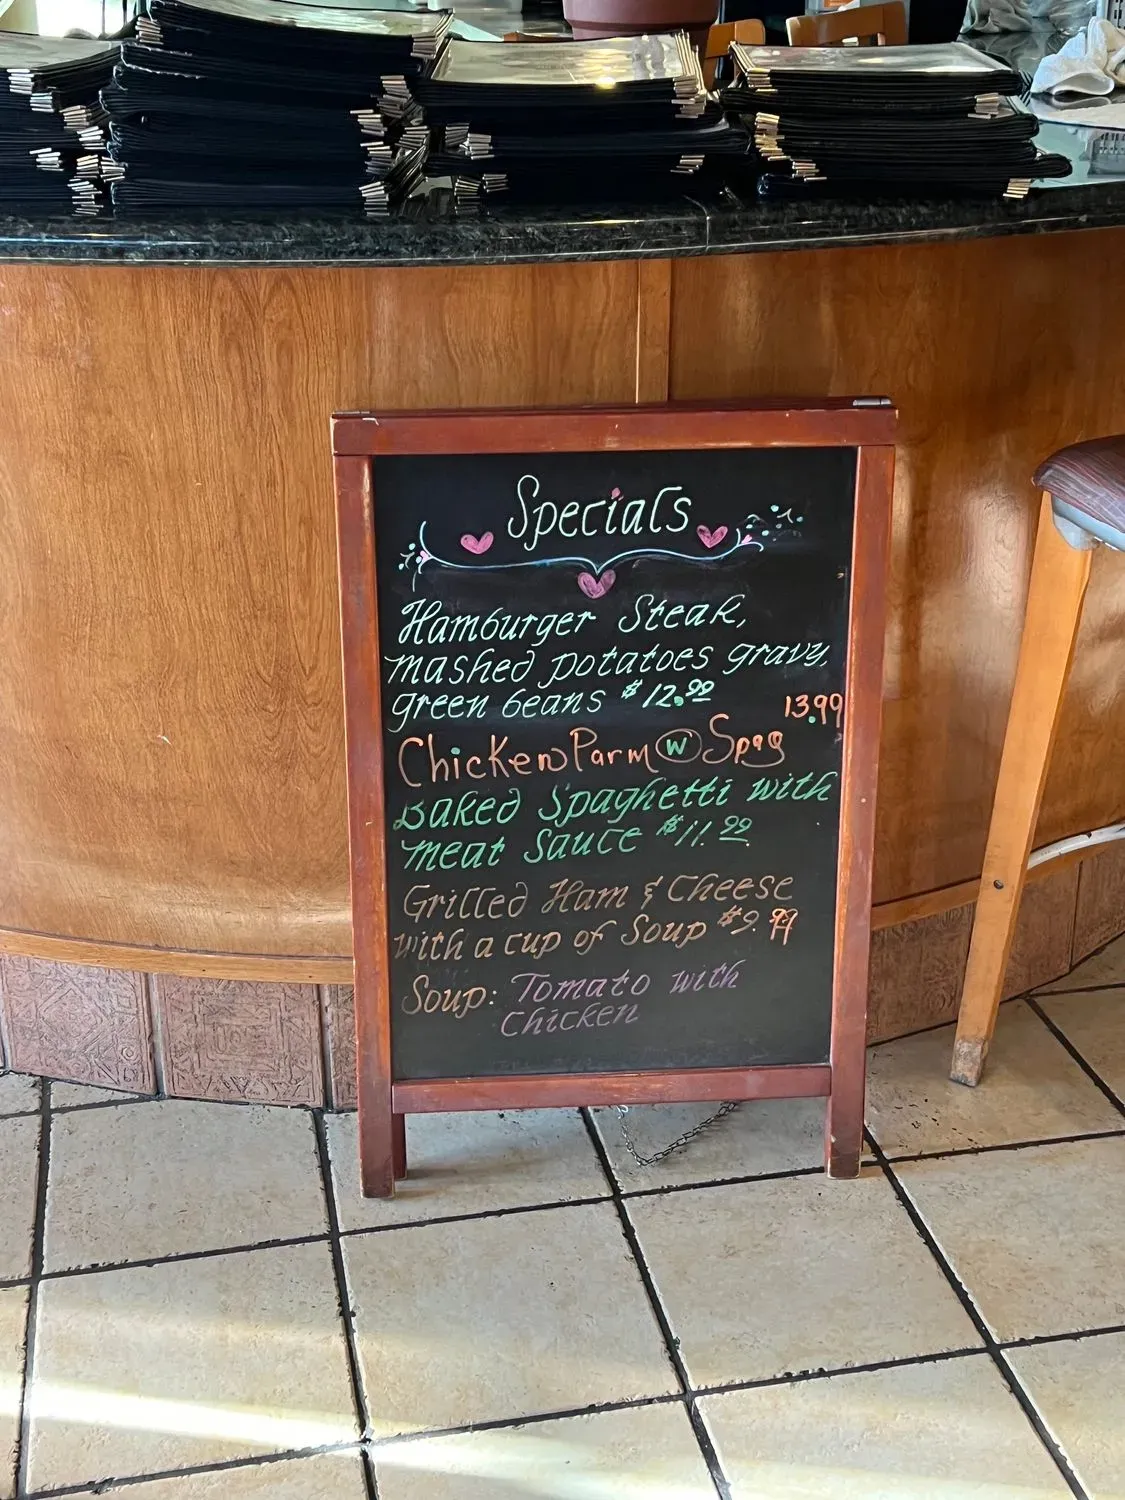 Specials
Hamburger Steak,
mashed potatoes gravy,
green beans $12.99
13.99
Chicken Parm w Spag
Baked Spaghetti with
meat Sauce $11.99
Grilled Ham & Cheese
with a cup of Soup $9.99
Soup: Tomato with
Chicken